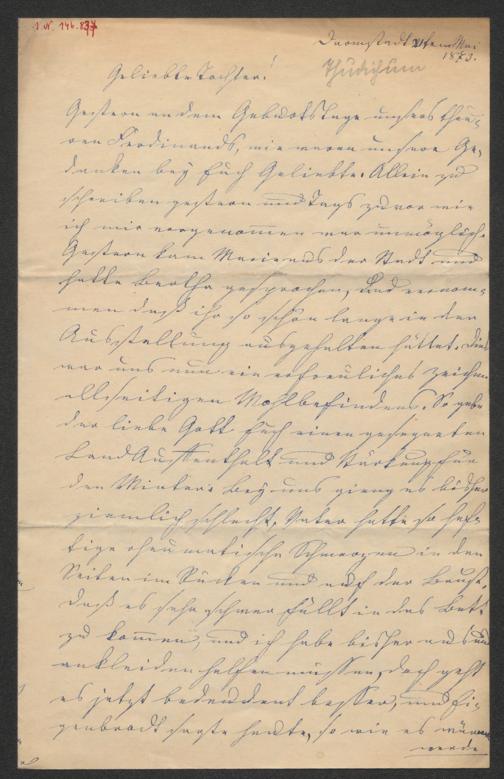 J. N. 146.837
Darmstadt ten Mai
1873.
Thudichum
Geliebte Tochter!
Gestern an dem Geburtstage unsers theu-
ren Ferdinands, wie waren unsere Ge-
danken bey Euch Geliebte. Allein zu
schreiben gestern und Tags zuvor wie
ich mir vorgenommen war unmöglich.
Gestern kam Marie aus der Stadt und
hatte Bertha gesprochen, und vernom-
men daß ihr so schön lange in der
Ausstellung ausgehalten hättet. Dies
war uns nun ein erfreuliches Zeichen
allseitigen Wohlbefindens. So gebe
der liebe Gott Euch einen gesegneten
LandAuffenthalt und Stärkung für
den Winter. Bey uns gieng es bisher
ziemlich schlecht, Vater hatte so hef-
tige rheumatische Schmerzen in den
Seiten im Rücken und auf der Brust,
daß es sehr schwer fällt in das Bett
zu kommen, und ich habe bisher aus und
ankleiden helfen müssen, doch geht
es jetzt bedeutend besser, und Ei-
genbrodt sagte heute, so wie es
werde